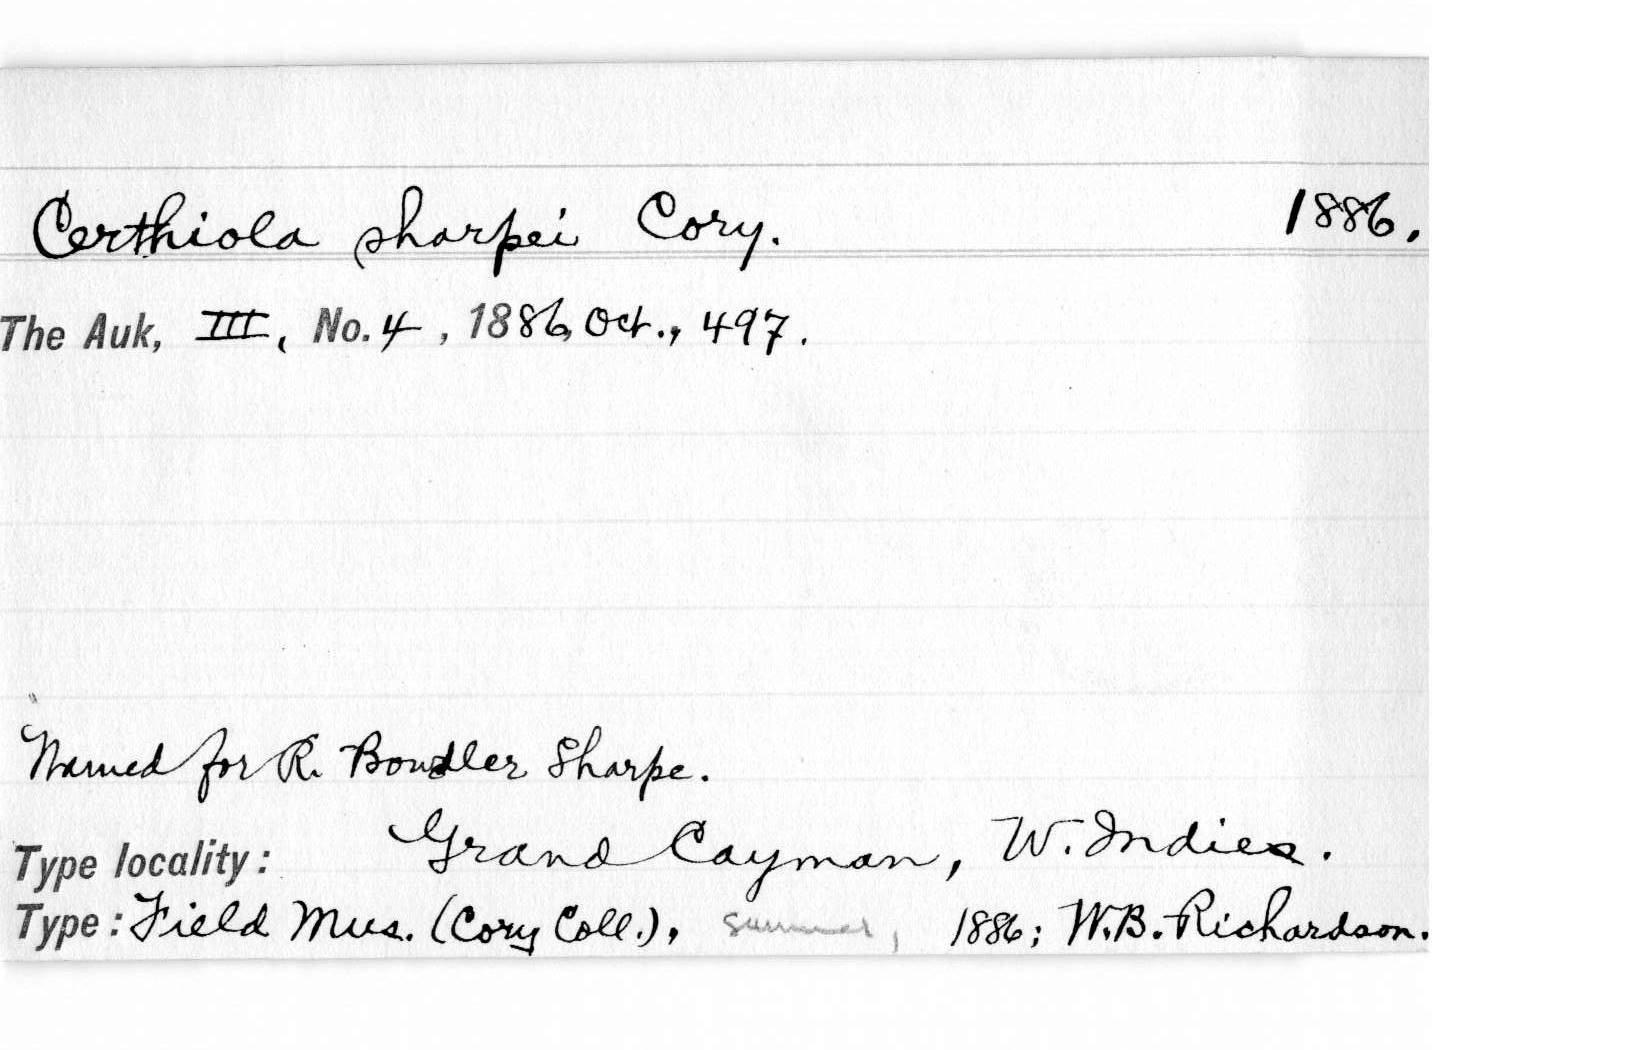 Certhiola sharpei Cory. 1886.
The Auk, III, No. 4, 1886, Oct., 497.
Named for R. Bowdler Sharpe.
Type locality: Grand Cayman, W. Indies.
Type: Field Mus. (Cory Coll.), summer, 1886; W.B. Richardson.